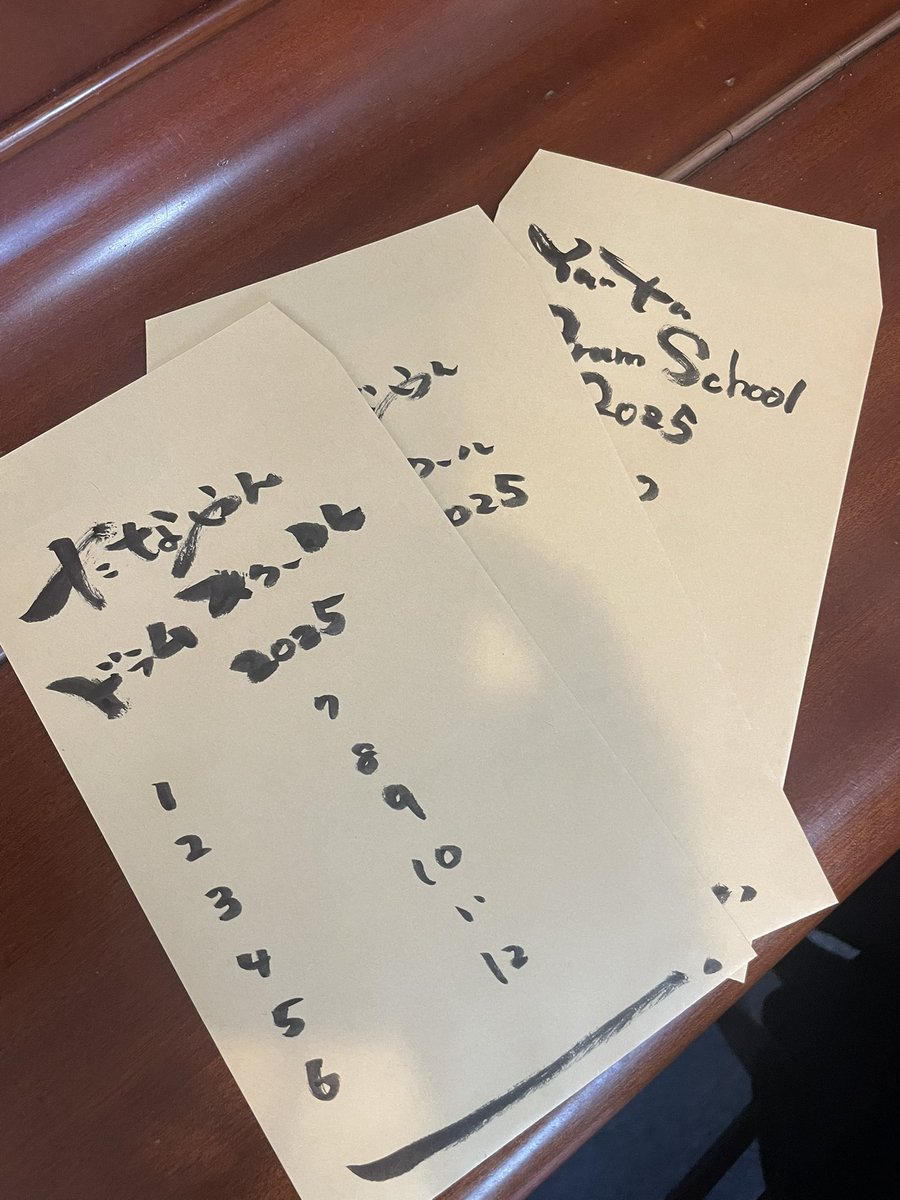 だなやん
ドラム スクール
2025
1
2
3
4
5
6
7
8
9
10
11
12
やん
クール
2025
School
2025